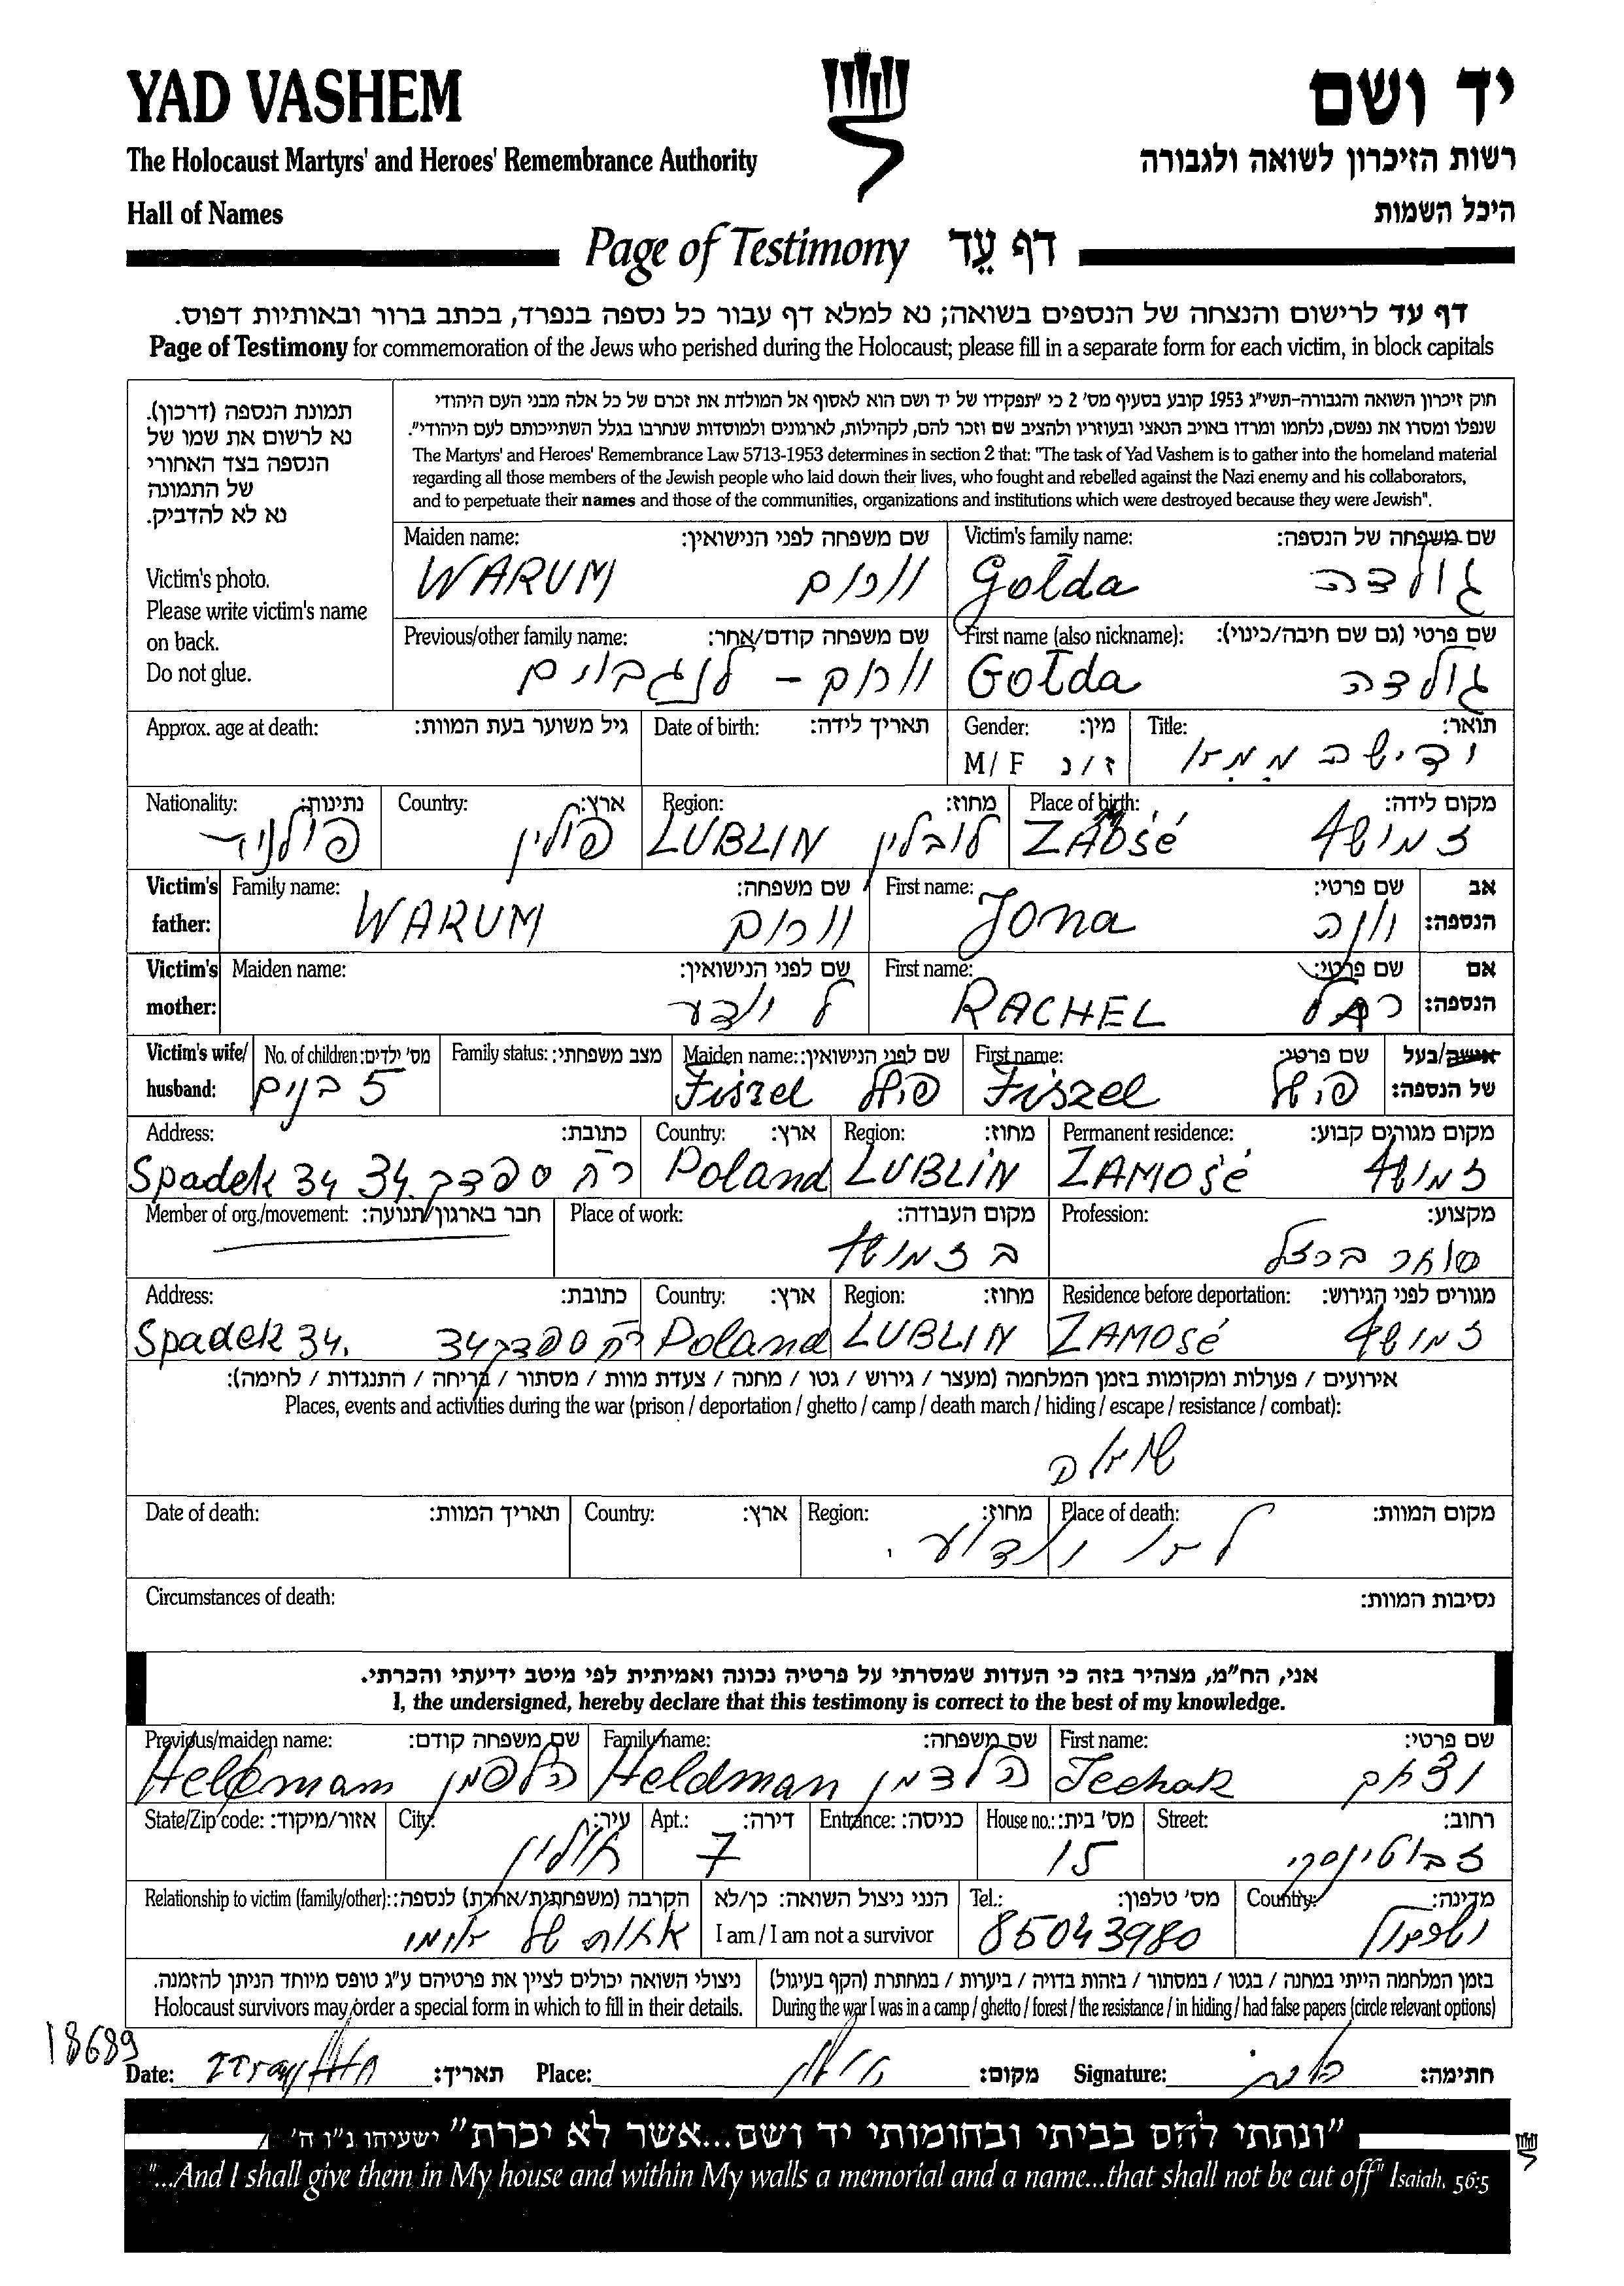 YAD VASHEM
יד ושם
The Holocaust Martyrs' and Heroes' Remembrance Authority
רשות הזיכרון לשואה ולגבורה
Hall of Names
היכל השמות
Page of Testimony דף עֵד
דף עד לרישום והנצחה של הנספים בשואה; נא למלא דף עבור כל נספה בנפרד, בכתב ברור ובאותיות דפוס.
Page of Testimony for commemoration of the Jews who perished during the Holocaust; please fill in a separate form for each victim, in block capitals
תמונת הנספה (דרכון).
נא לרשום את שמו של
הנספה בצד האחורי
של התמונה
נא לא להדביק.
Victim's photo.
Please write victim's name
on back.
Do not glue.
חוק זיכרון השואה והגבורה-תשי"ג 1953 קובע בסעיף מס' 2 כי "תפקידו של יד ושם הוא לאסוף אל המולדת את זכרם של כל אלה מבני העם היהודי
שנפלו ומסרו את נפשם, נלחמו ומרדו באויב הנאצי ובעוזריו ולהציב שם וזכר להם, לקהילות, לארגונים ולמוסדות שנחרבו בגלל השתייכותם לעם היהודי".
The Martyrs' and Heroes' Remembrance Law 5713-1953 determines in section 2 that: "The task of Yad Vashem is to gather into the homeland material
regarding all those members of the Jewish people who laid down their lives, who fought and rebelled against the Nazi enemy and his collaborators,
and to perpetuate their names and those of the communities, organizations and institutions which were destroyed because they were Jewish".
Maiden name: שם משפחה לפני הנישואין: Victim's family name: שם משפחה של הנספה:
WARUM וורום Golda גולדה
Previous/other family name: שם משפחה קודם/אחר: First name (also nickname): שם פרטי (גם שם חיבה/כינוי):
וורום - לנגבוים Golda גולדה
Approx. age at death: גיל משוער בעת המוות: Date of birth: תאריך לידה: Gender: מין: Title: תואר:
M / F ז / נ
Nationality: נתינות: Country: ארץ: Region: מחוז: Place of birth: מקום לידה:
פולניה פולין LUBLIN לובלין זמושץ
Victim's father: Family name: שם משפחה: First name: שם פרטי: אב הנספה:
WARUM וורום Jona יונה
Victim's mother: Maiden name: שם לפני הנישואין: First name: שם פרטי: אם הנספה:
לא ידוע RACHEL רחל
Victim's wife/husband: No. of children: מס' ילדים: Family status: מצב משפחתי: Maiden name: שם לפני הנישואין: First name: שם פרטי: אישה/בעל של הנספה:
5 בנים Fiszel פישל Fiszel פישל
Address: כתובת: Country: ארץ: Region: מחוז: Permanent residence: מקום מגורים קבוע:
Spadek 34 רח ספדק 34. Poland LUBLIN ZAMOŚĆ זמושץ
Member of org./movement: חבר בארגון/תנועה: Place of work: מקום העבודה: Profession: מקצוע:
ב זמושץ סוחר ברזל
Address: כתובת: Country: ארץ: Region: מחוז: Residence before deportation: מגורים לפני הגירוש:
Spadek 34. רח ספדק 34 Poland LUBLIN ZAMOŚĆ זמושץ
אירועים / פעולות ומקומות בזמן המלחמה (מעצר / גירוש / גטו / מחנה / צעדת מוות / מסתור / בריחה / התנגדות / לחימה):
Places, events and activities during the war (prison / deportation / ghetto / camp / death march / hiding / escape / resistance / combat):
שואה
Date of death: תאריך המוות: Country: ארץ: Region: מחוז: Place of death: מקום המוות:
לא ידוע.
Circumstances of death: נסיבות המוות:
אני, הח"מ, מצהיר בזה כי העדות שמסרתי על פרטיה נכונה ואמיתית לפי מיטב ידיעתי והכרתי.
I, the undersigned, hereby declare that this testimony is correct to the best of my knowledge.
Previous/maiden name: שם משפחה קודם: Family name: שם משפחה: First name: שם פרטי:
הלפמן Heldman הלדמן יצחק
State/Zip code: אזור/מיקוד: City: עיר: Apt.: דירה: Entrance: כניסה: House no.: מס' בית: Street: רחוב:
חולון 7 15 זבוטינסקי
Relationship to victim (family/other): הקרבה (משפחתית/אחרת) לנספה: הנני ניצול השואה: כן/לא Tel.: מס' טלפון: Country: מדינה:
אחות של אימי I am / I am not a survivor 85043980 ישראל
ניצולי השואה יכולים לציין את פרטיהם ע"ג טופס מיוחד הניתן להזמנה. בזמן המלחמה הייתי במחנה / בגטו / במסתור / בזהות בדויה / ביערות / במחתרת (הקף בעיגול)
Holocaust survivors may order a special form in which to fill in their details. During the war I was in a camp / ghetto / forest / the resistance / in hiding / had false papers (circle relevant options)
18689
Date: תאריך: Place: מקום: Signature: חתימה:
"ונתתי להם בביתי ובחומותי יד ושם...אשר לא יכרת" ישעיהו נ"ו ה'
"...And I shall give them in My house and within My walls a memorial and a name...that shall not be cut off" Isaiah, 56:5